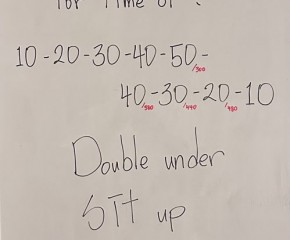 for Time of :
10-20-30-40-50-
/300
40-30-20-10
/380 /440 /480
Double under
SIt up